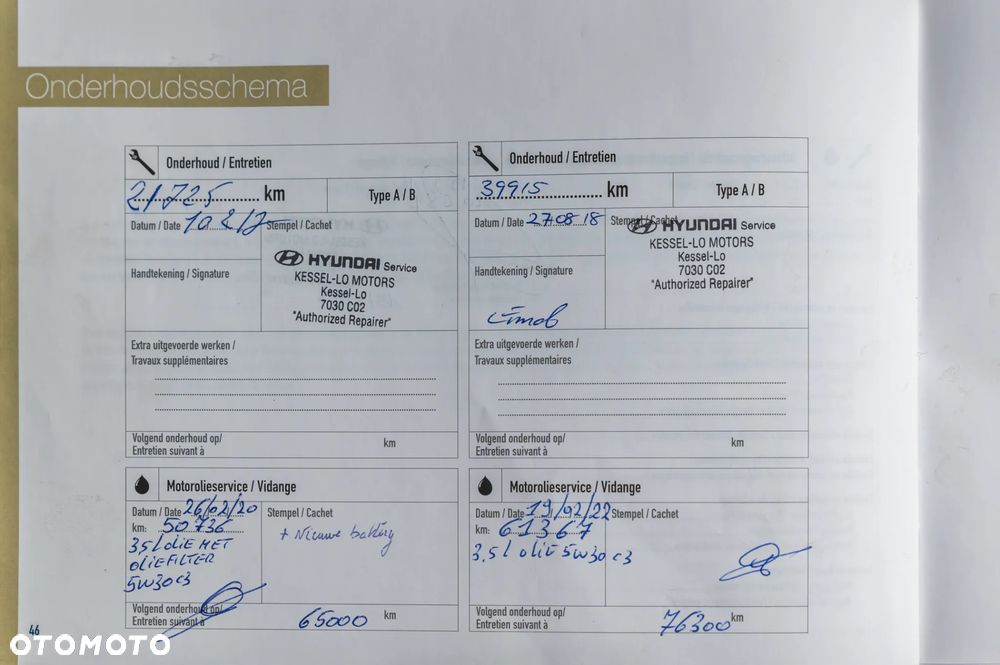 Onderhoudsschema
Onderhoud / Entretien
21725 km
Type A / B
Datum / Date 10 2 17
Stempel / Cachet
HYUNDAI Service
KESSEL-LO MOTORS
Kessel-Lo
7030 C02
"Authorized Repairer"
Handtekening / Signature
Extra uitgevoerde werken /
Travaux supplémentaires
Volgend onderhoud op/
Entretien suivant à
km
Onderhoud / Entretien
39915 km
Type A / B
Datum / Date 27 08 18
Stempel / Cachet
HYUNDAI Service
KESSEL-LO MOTORS
Kessel-Lo
7030 C02
"Authorized Repairer"
Handtekening / Signature
Extra uitgevoerde werken /
Travaux supplémentaires
Volgend onderhoud op/
Entretien suivant à
km
Motorolieservice / Vidange
Datum / Date 26/02/20
Stempel / Cachet
km: 50736
+ Nieuwe
3,5 l OLIE MET
OLIEFILTER
5W30 C3
Volgend onderhoud op/
Entretien suivant à
65000 km
Motorolieservice / Vidange
Datum / Date 19/02/22
Stempel / Cachet
km: 61367
3,5 l OLIE 5W30 C3
Volgend onderhoud op/
Entretien suivant à
76300 km
46
OTOMOTO